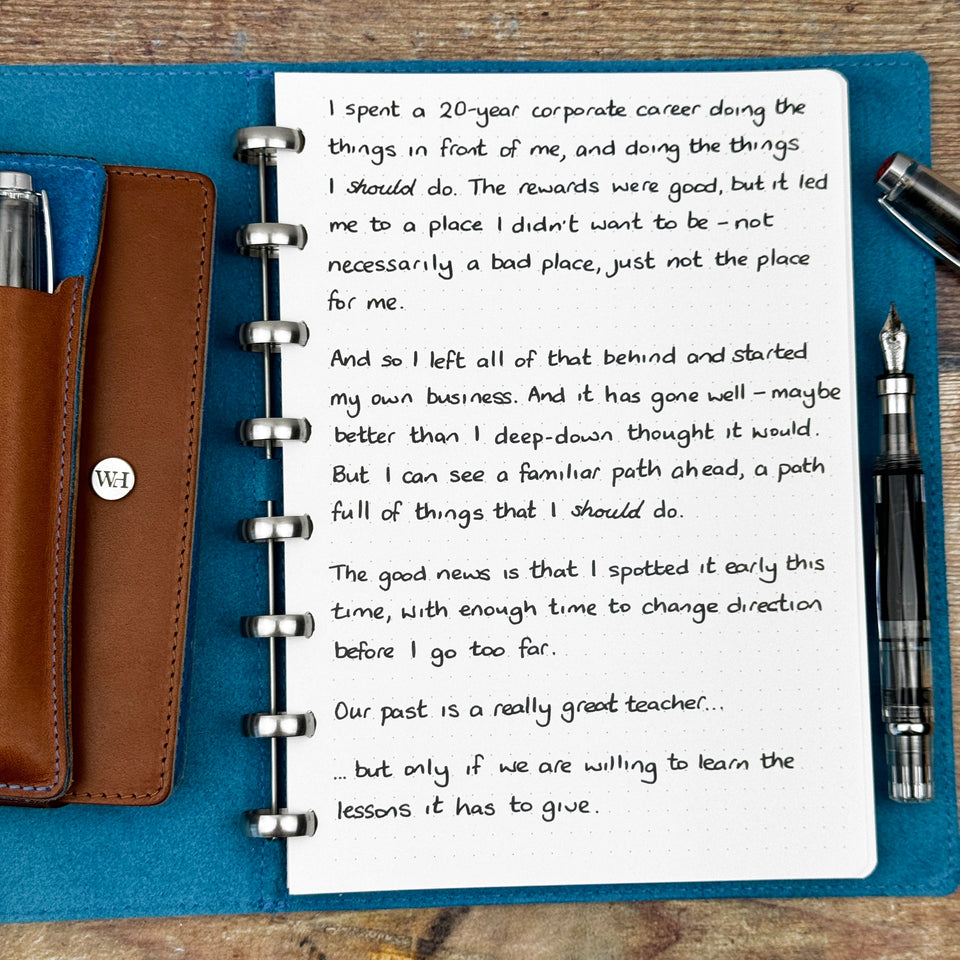 I spent a 20-year corporate career doing the
things in front of me, and doing the things
I should do. The rewards were good, but it led
me to a place I didn't want to be – not
necessarily a bad place, just not the place
for me.
And so I left all of that behind and started
my own business. And it has gone well – maybe
better than I deep-down thought it would.
But I can see a familiar path ahead, a path
full of things that I should do.
The good news is that I spotted it early this
time, with enough time to change direction
before I go too far.
Our past is a really great teacher...
... but only if we are willing to learn the
lessons it has to give.
WH